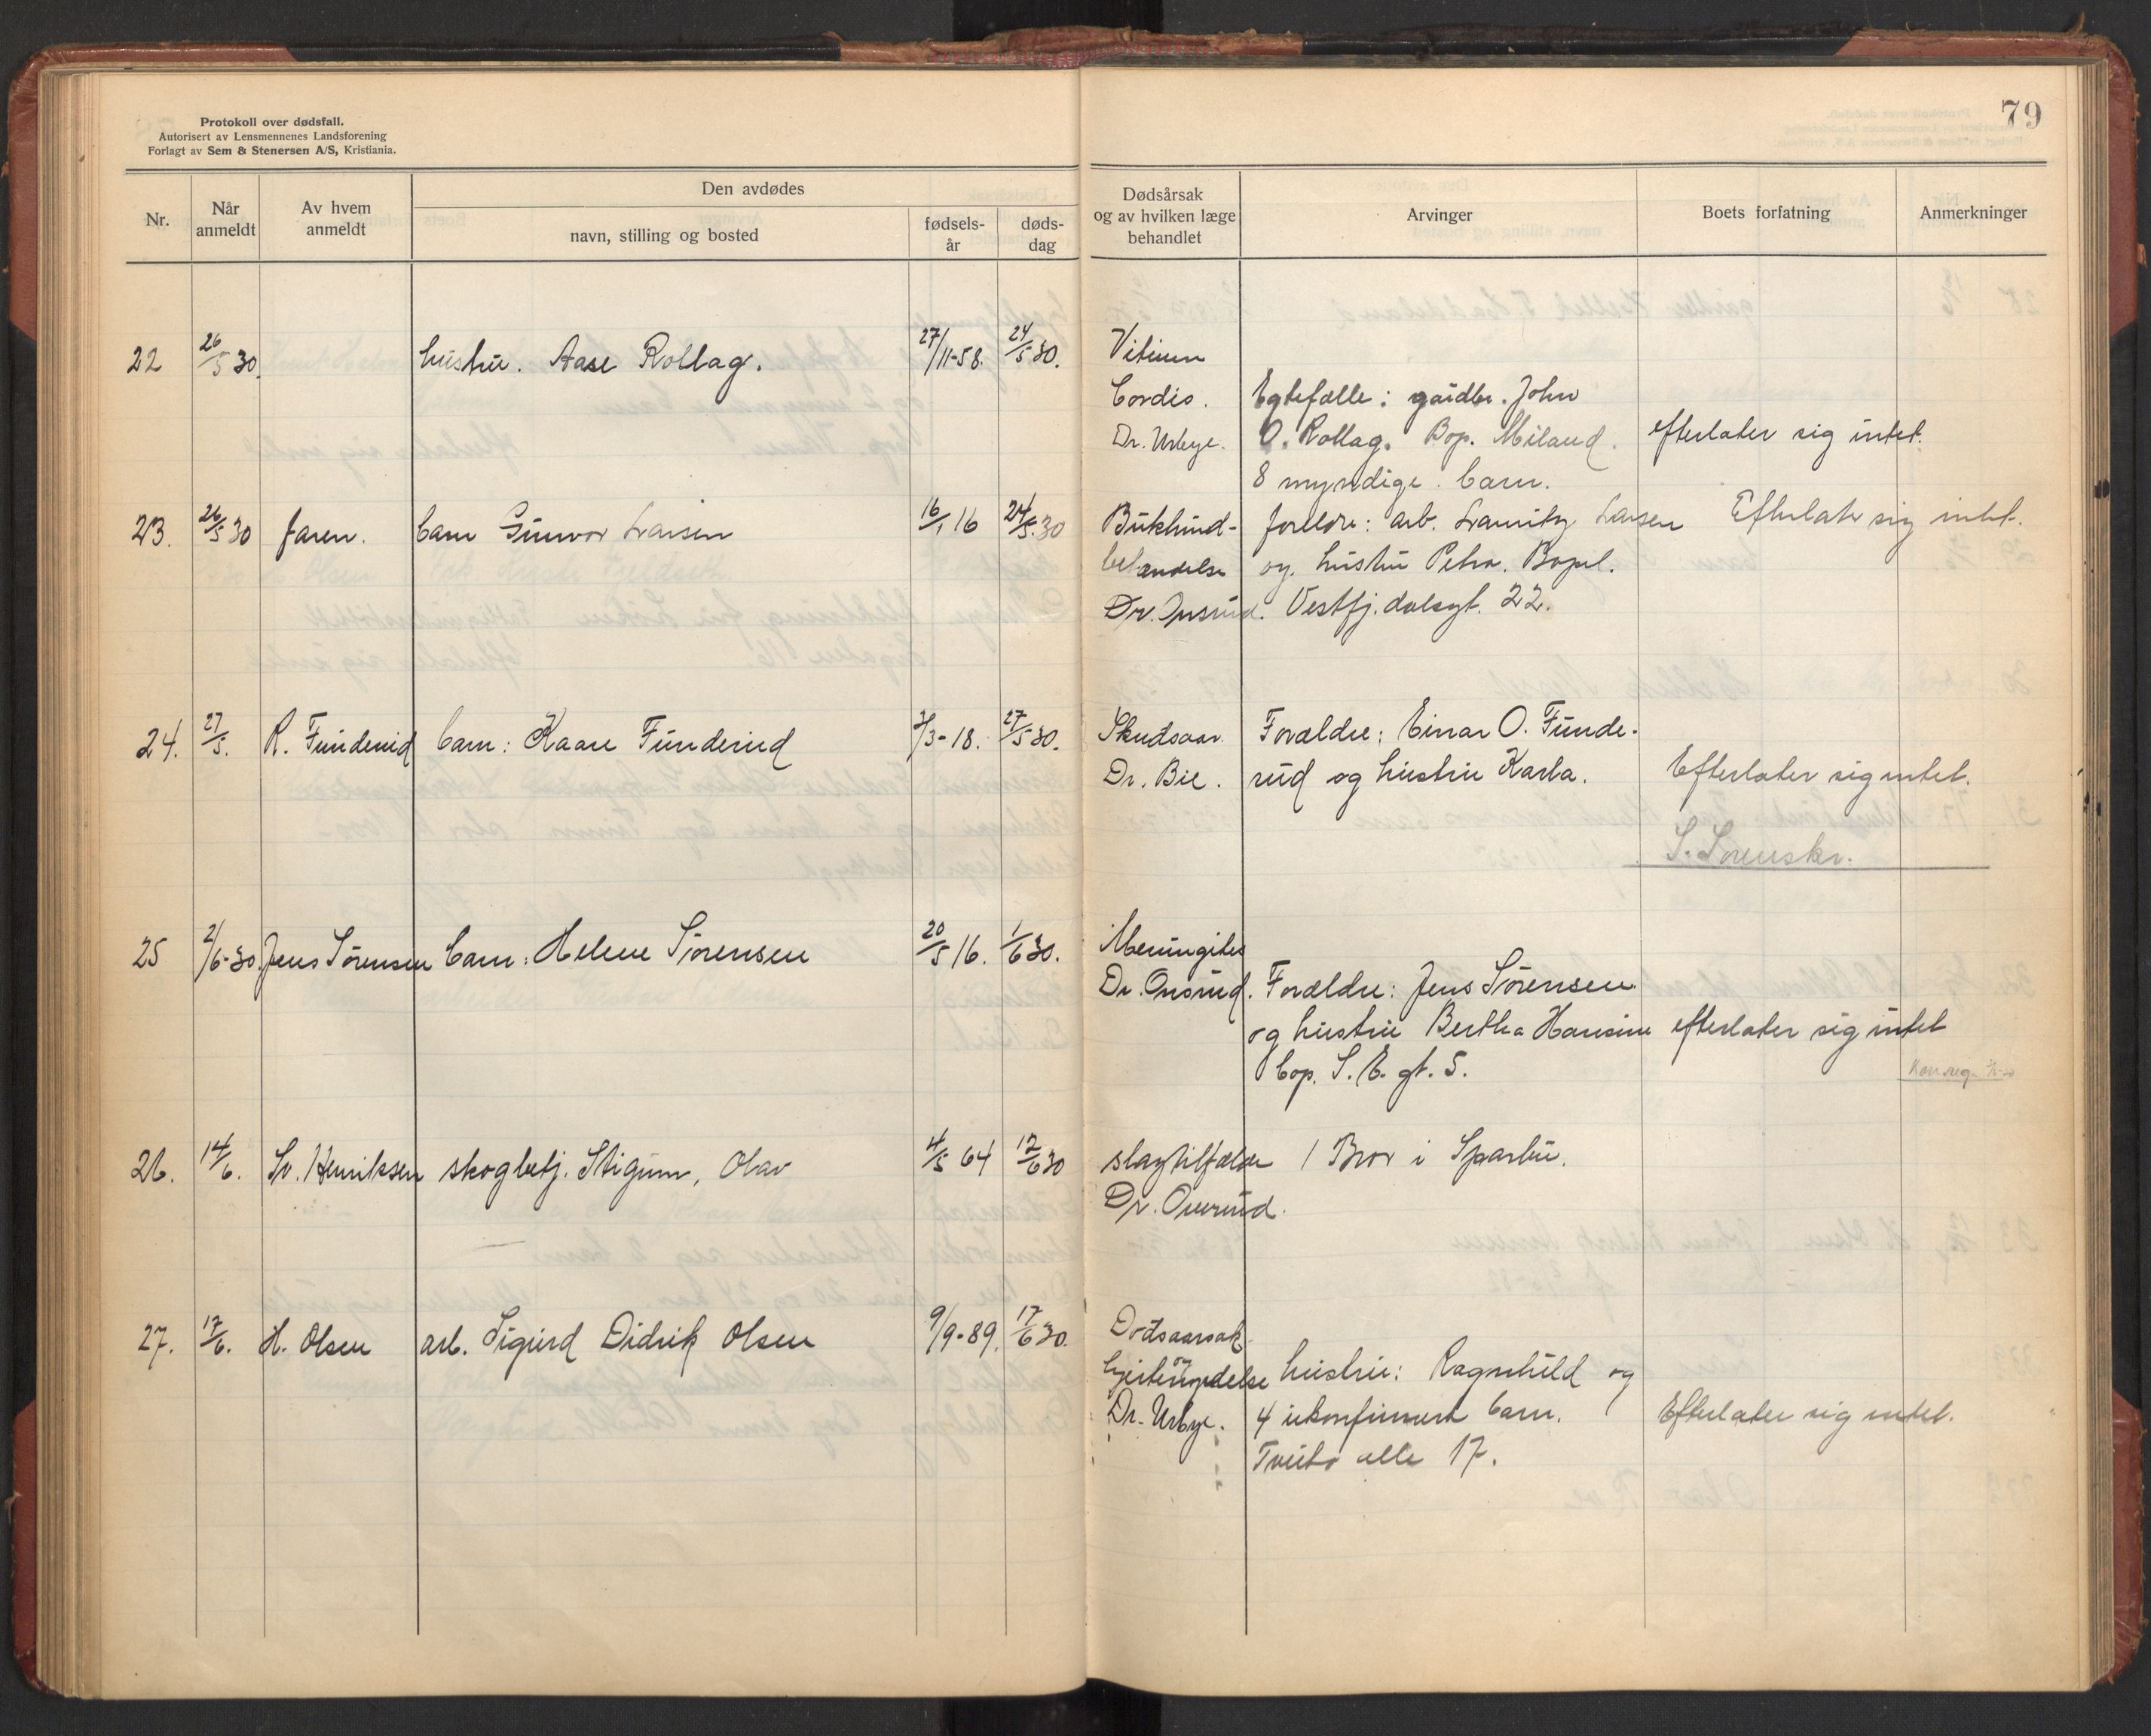 79
Protokoll over dødsfall.
Autorisert av Lensmennenes Landsforening
Forlagt av Sem & Stenersen A/S, Kristiania.
Nr.
Når anmeldt
Av hvem anmeldt
Den avdødes
navn, stilling og bosted
fødsels-år
døds-dag
Dødsårsak og av hvilken læge behandlet
Arvinger
Boets forfatning
Anmerkninger
22 26/5 30. hustru. Aase Rollag. 27/11-58. 24/5 30. Vitium
Cordis. Egtefælle: gaardbr. John
Dr. Urbye. O. Rollag. Bop. Miland. efterlater sig intet.
8 myndige barn.
23. 26/5 30 faren. barn Gunvor Larsen 16/1 16 24/5 30 Bukhind- foreldre: arb. Lauritz Larsen Efterlater sig intet.
betændelse og hustru Petra. Bopel.
Dr. Onsrud. Vestfj.dalsgt. 22.
24. 27/5. R. Funderud barn: Kaare Funderud 3/3-18. 27/5 30. Skudsaar Forældre: Einar O. Funde-
Dr. Bie. rud og hustru Karla. Efterlater sig intet.
S. Sorenskr.
25 2/6-30. Jens Sørensen barn: Helene Sørensen 20/5 16. 1/6 30. Meningites
Dr. Onsrud. Forældre: Jens Sørensen
og hustru Bertha Hansine efterlater sig intet
bop. S. E. gt. 5.
26. 14/6. Sv. Henriksen skogbetj. Stigum, Olav 4/5 64 12/6 30 slagtilfælde 1 Bror i Sparbu.
Dr. Onsrud.
27. 17/6. H. Olsen arb. Sigurd Didrik Olsen 9/9-89. 17/6 30. Dødsaarsak
hustru: Ragnhild og
Dr. Urbye. 4 ukonfirmert barn. Efterlater sig intet.
Tveito alle 17.